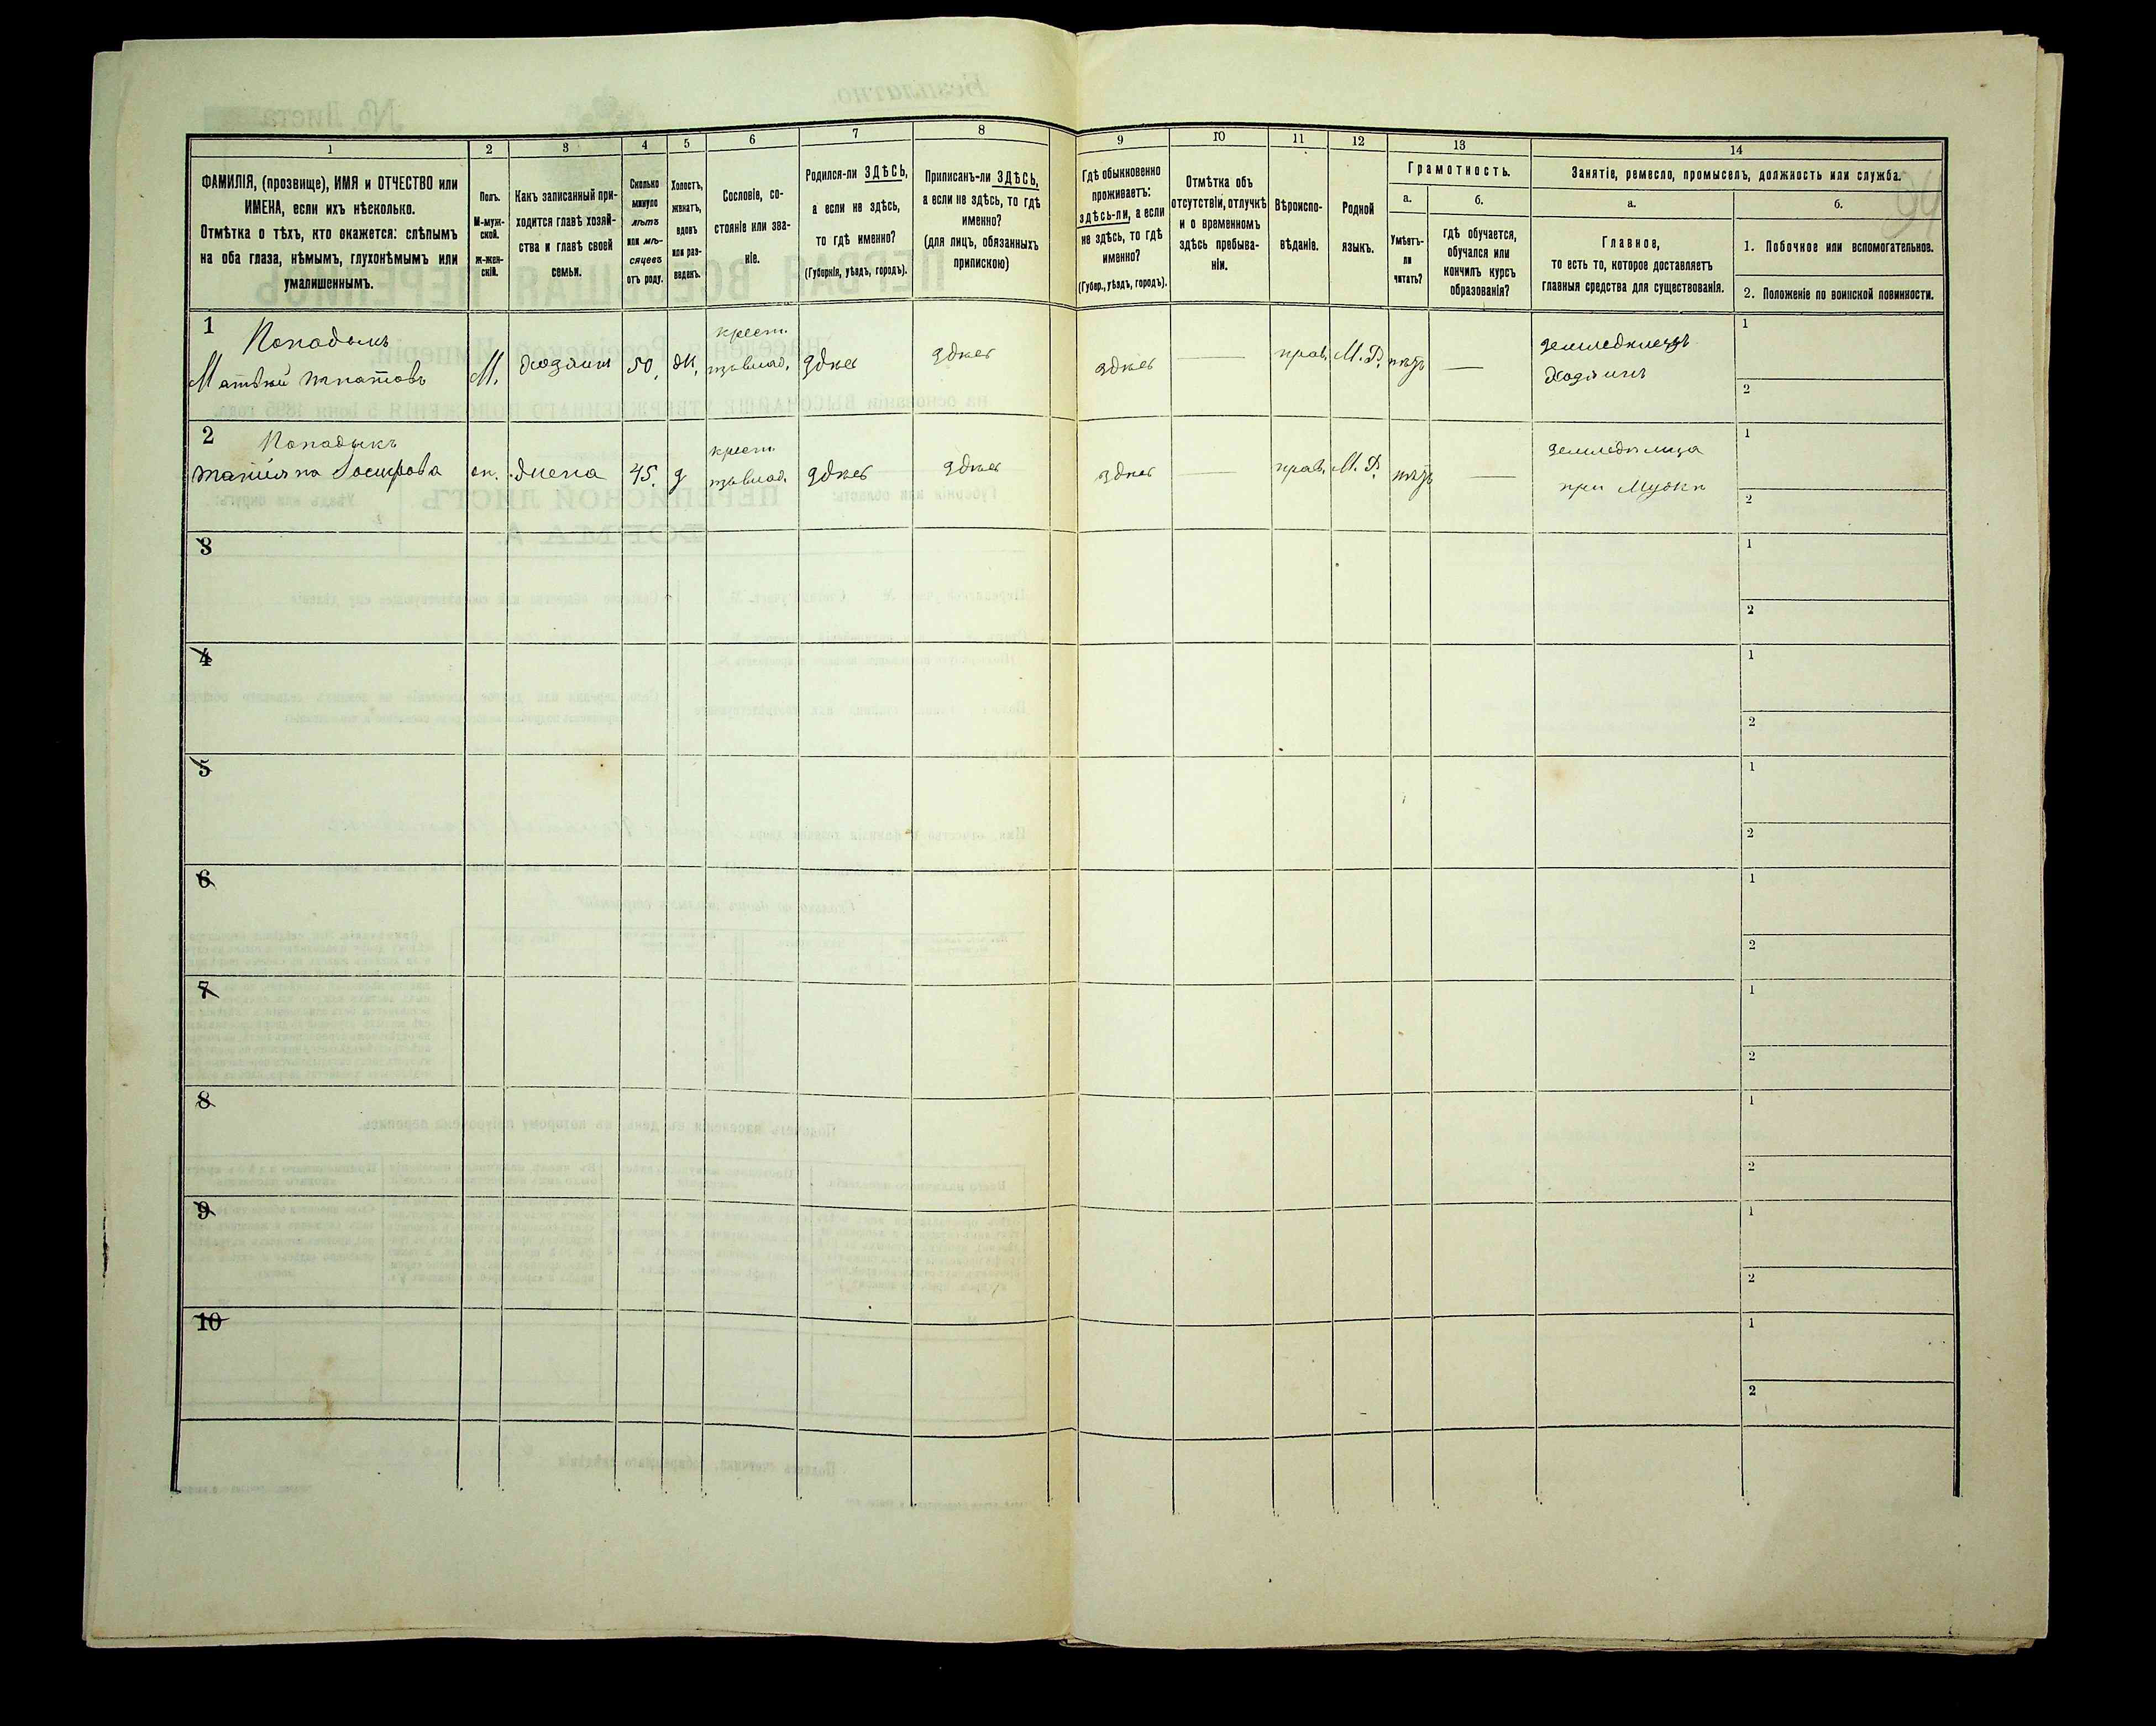 94
1 2 3 4 5 6 7 8 9 10 11 12 13 14
ФАМИЛІЯ, (прозвище), ИМЯ и ОТЧЕСТВО или
ИМЕНА, если ихъ нѣсколько.
Отмѣтка о тѣхъ, кто окажется: слѣпымъ
на оба глаза, нѣмымъ, глухонѣмымъ или
умалишеннымъ.
Полъ.
М-муж-
ской.
ж-жен-
скій.
Какъ записанный при-
ходится главѣ хозяй-
ства и главѣ своей
семьи.
Сколько
минуло
лѣтъ
или мѣ-
сяцевъ
отъ роду.
Холостъ,
женатъ,
вдовъ
или раз-
веденъ.
Сословіе, со-
стояніе или зва-
ніе.
Родился-ли ЗДѢСЬ,
а если не здѣсь,
то гдѣ именно?
(Губернія, уѣздъ, городъ).
Приписанъ-ли ЗДѢСЬ,
а если не здѣсь, то гдѣ
именно?
(для лицъ, обязанныхъ
припискою)
Гдѣ обыкновенно
проживаетъ:
здѣсь-ли, а если
не здѣсь, то гдѣ
именно?
(Губер., уѣздъ, городъ).
Отмѣтка объ
отсутствіи, отлучкѣ
и о временномъ
здѣсь пребыва-
ніи.
Вѣроиспо-
вѣданіе.
Родной
языкъ.
Грамотность.
а.
Умѣетъ-
ли
читать?
б.
гдѣ обучается,
обучался или
кончилъ курсъ
образованія?
Занятіе, ремесло, промыселъ, должность или служба.
а.
Главное,
то есть то, которое доставляетъ
главныя средства для существованія.
б.
1. Побочное или вспомогательное.
2. Положеніе по воинской повинности.
1
М. хозяин 50. ж.
крест.
здѣсь здѣсь здѣсь — прав. М. Р. нѣтъ —
Хозяинъ
1
2
2
жена 45. з
крест.
здѣсь здѣсь здѣсь — прав. М. Р. нѣтъ —
при Мужѣ
1
2
3
1
2
4
1
2
5
1
2
6
1
2
7
1
2
8
1
2
9
1
2
10
1
2